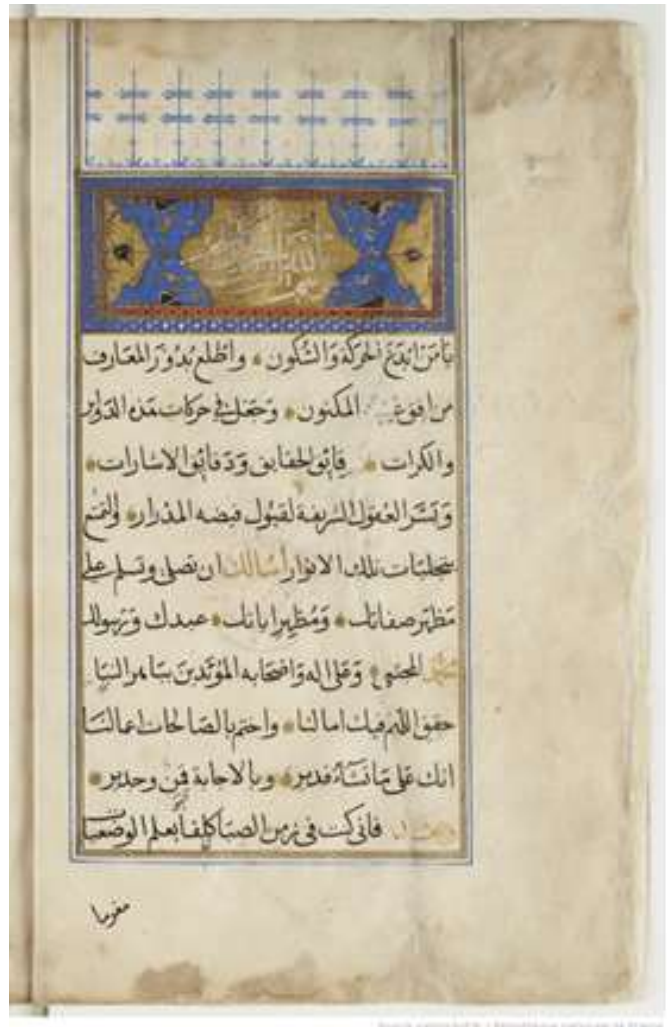 يا من ابدع الحركة والسكون واطلع بدور المعارف
من افق المكنون وجعل في حركات هذه الدواير
والكرات الحقايق ودقائق الاشارات
العقول الشريفة لقبول فيضه المدرار
تلك الانوار أسالك ان تصلي وتسلم على
مظهر صفاتك ومظهر اياتك عبدك ورسولك
المجتبى وعلى اله واصحابه المؤيدين
حقق اللهم فيك امالنا واختم بالصالحات اعمالنا
انك على ما تشاء قدير وبالاجابة قمن وجدير
فاني كنت في زمن الصبا كلفا بعلم الوضعيات
مغرما